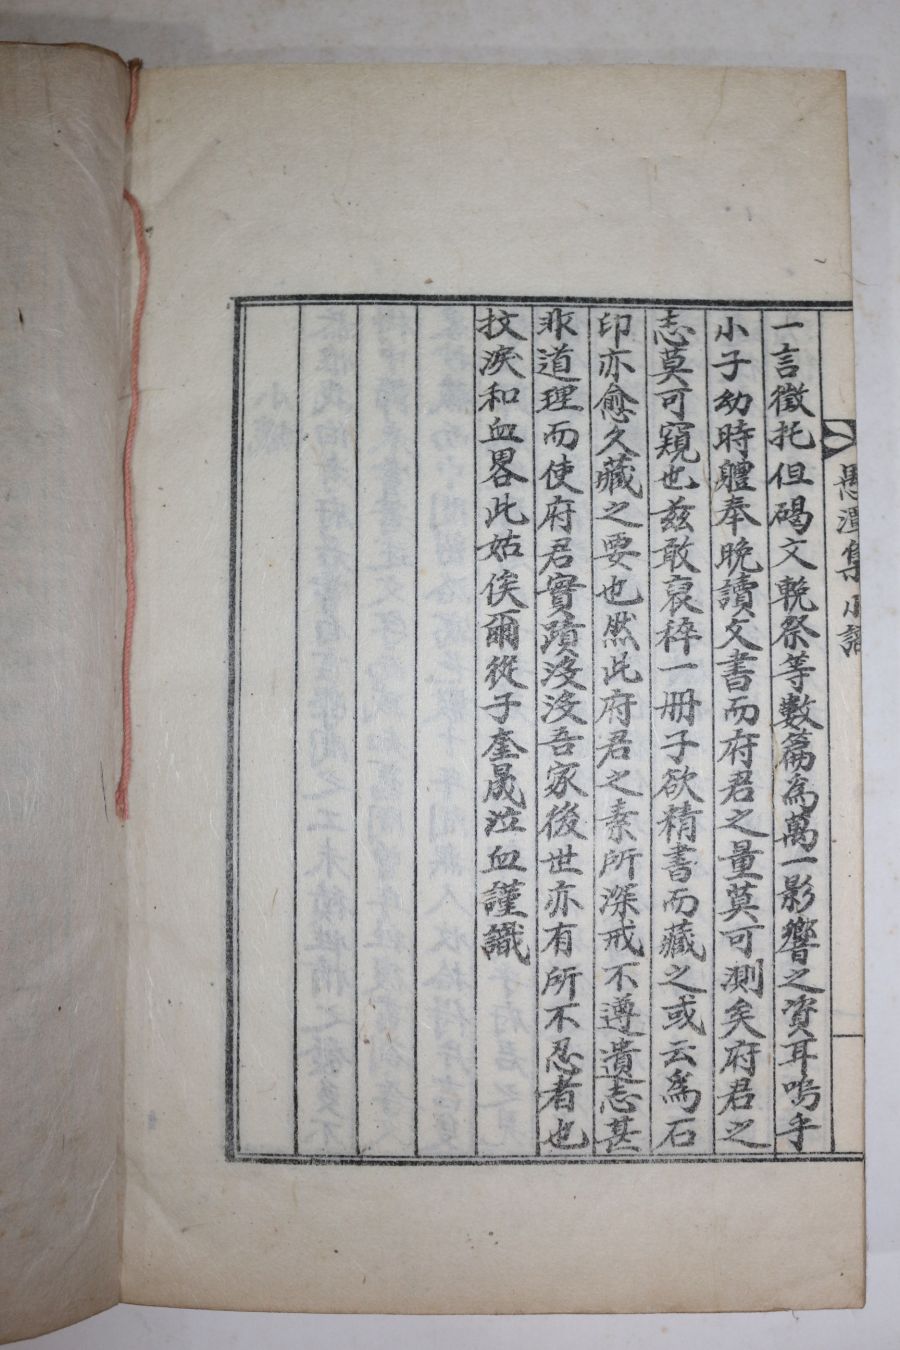 愚潭集 小識
一言徵托但碣文輓祭等數篇為萬一影響之資耳嗚乎
小子幼時軆奉晚讀文書而府君之量莫可測矣府君之
志莫可窺也玆敢裒稡一冊子欲精書而藏之或云為石
印亦愈久藏之要也然此府君之素所深戒不遵遺志甚
非道理而使府君實蹟沒沒吾家後世亦有所不忍者也
抆淚和血畧此姑俟爾從子奎晟泣血謹識